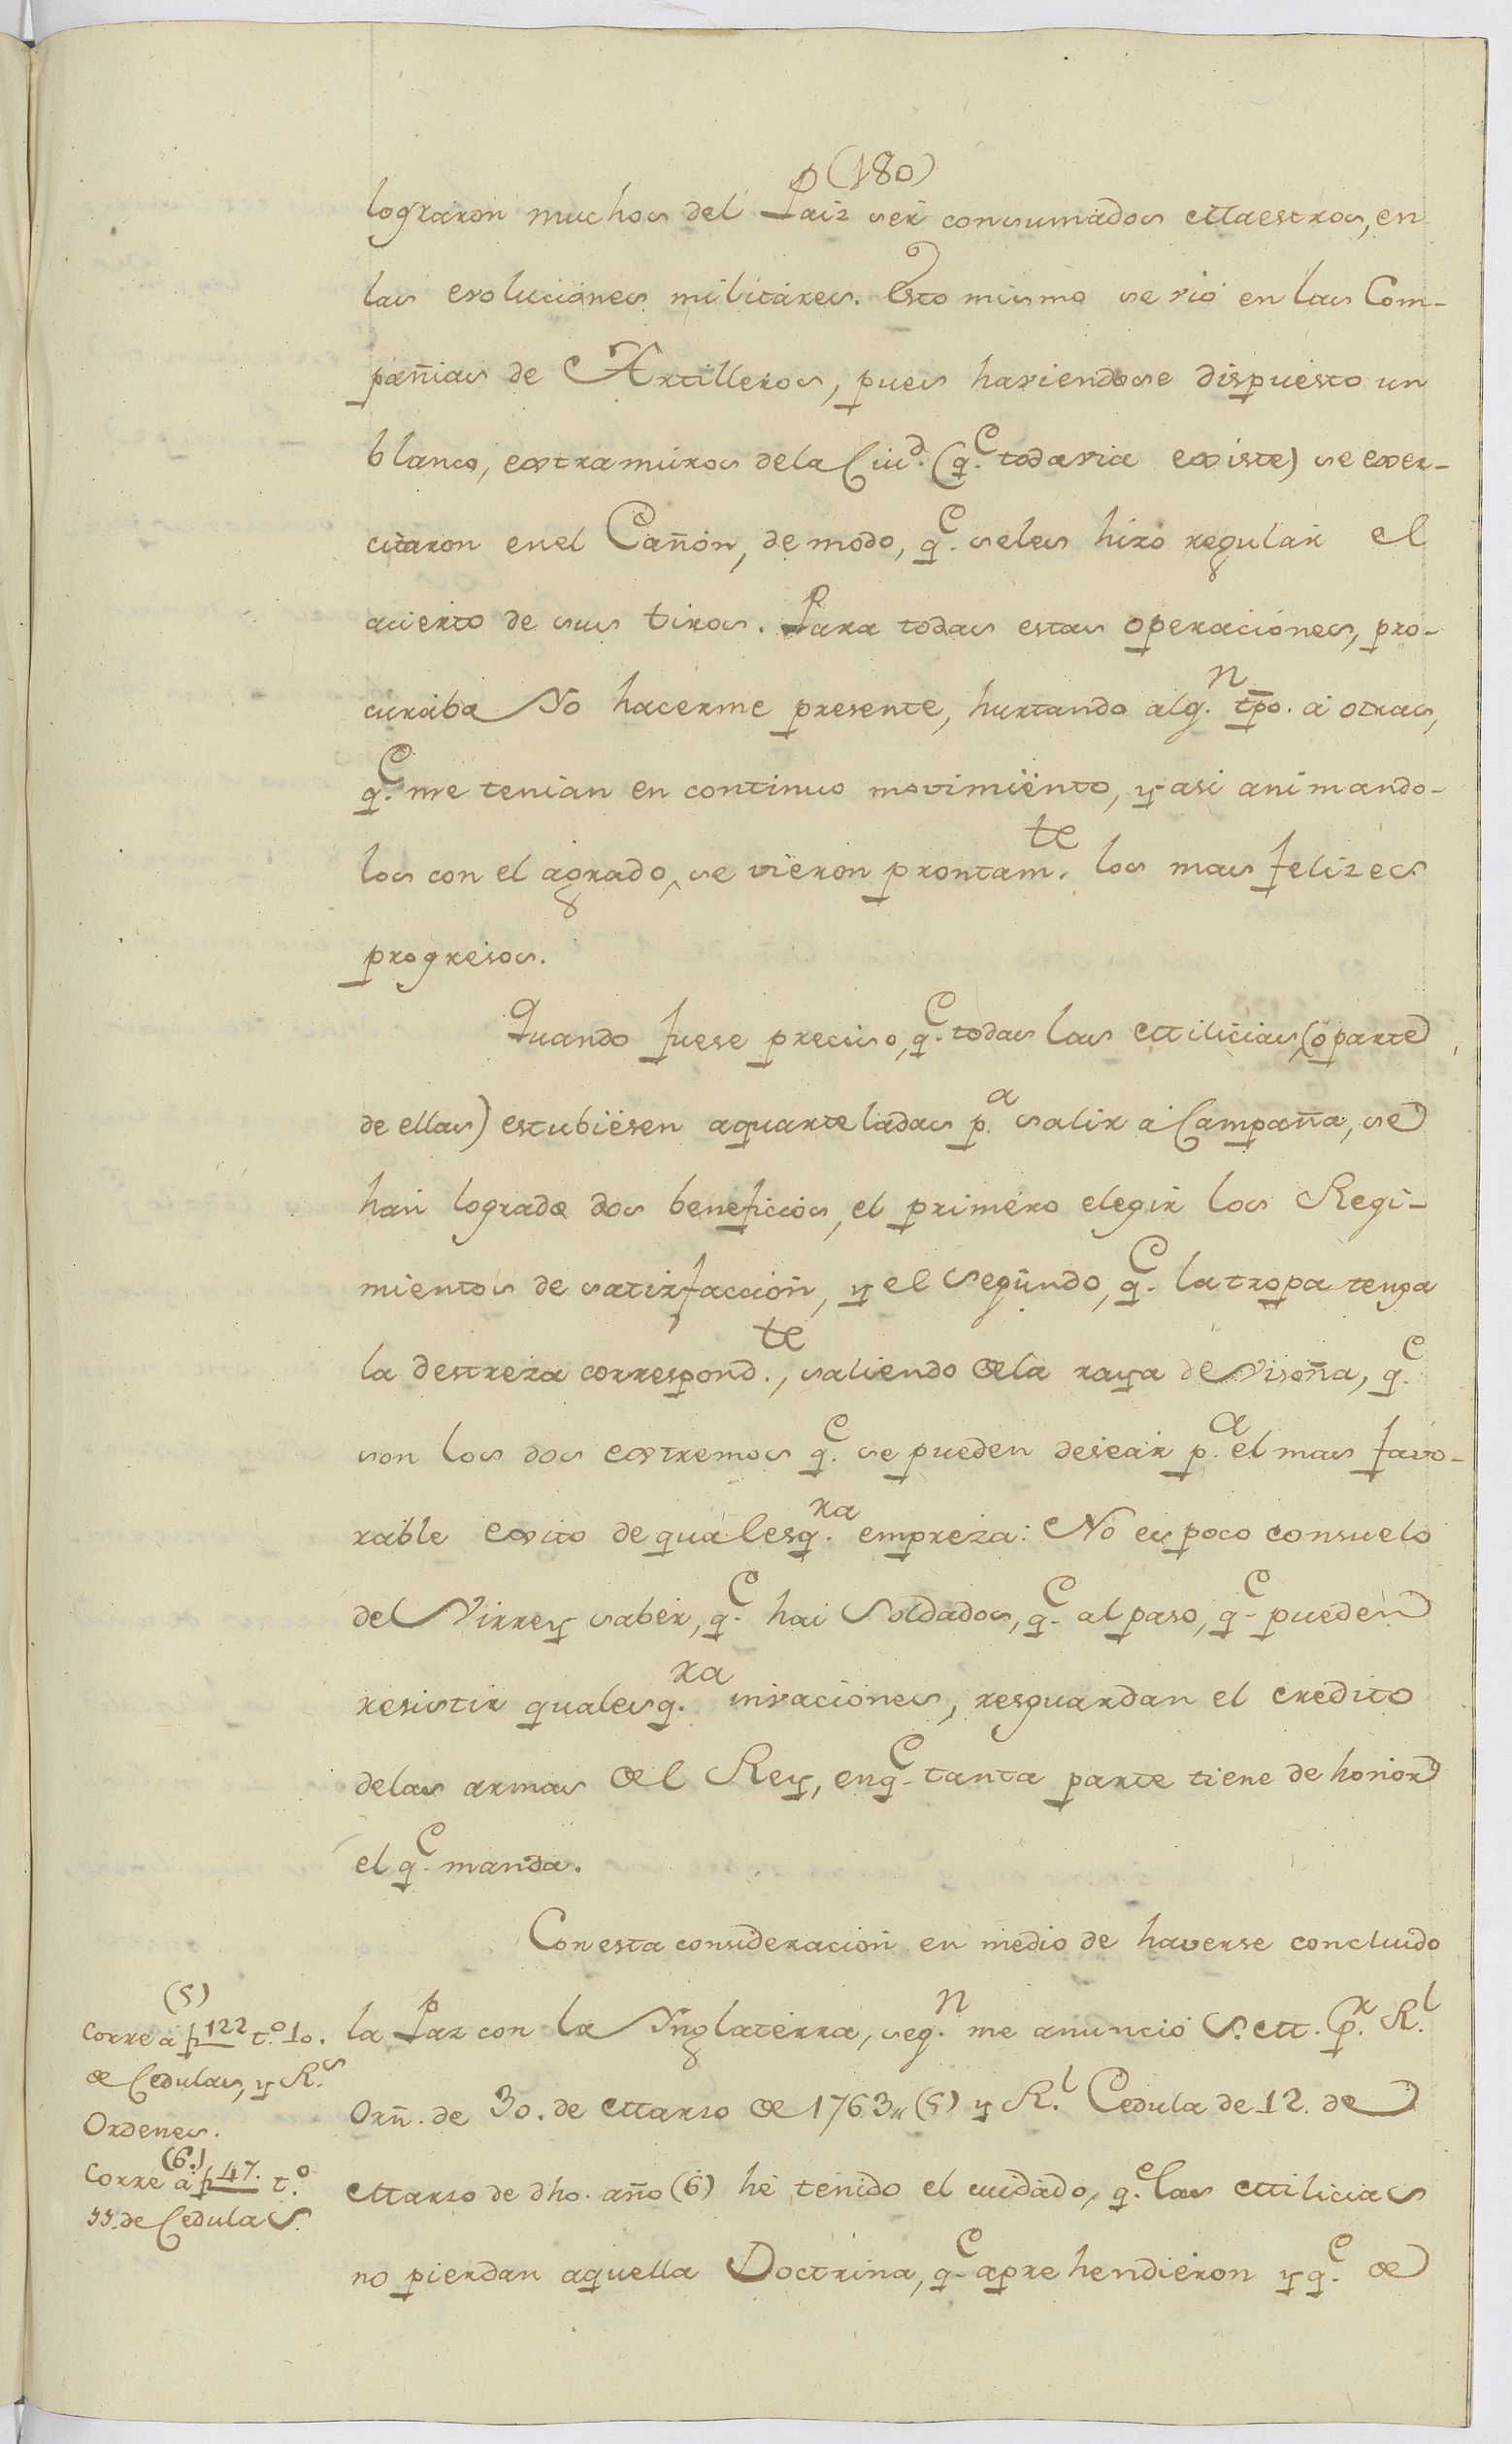 (180)
lograron muchos del Paiz ser consumados Maestros, en
las evoluciones militares. Esto mismo se vio en las Com-
pañias de Artilleros, pues haviendose dispuesto un
blanco, extramuros dela Ciud. (q.e todavia existe) se exer-
citaron en el Cañon, de modo, q.e seles hizo regular el
acierto de sus tiros. Para todas estas operaciones, pro-
curaba Yo hacerme presente, hurtando alg.n tpo. a otras,
q.e me tenian en continuo movimiento, y asi animando-
los con el agrado, se vieron prontam.te los mas felizes
progresos.
Quando fuese preciso, q.e todas las Milicias, (ò parte
de ellas) estubiesen aquarteladas p.a salir à Campaña, se
han logrado dos beneficios, el primero elegir los Regi-
mientos de satisfaccion, y el segundo, q.e la tropa tenga
la destreza correspond.te, saliendo de la raya de visoña, q.e
son los dos extremos q.e se pueden desear p.a el mas favo-
rable exito de qualesq.ra empreza: No es poco consuelo
del Virrey saber, q.e hai Soldados, q.e al paso, q.e pueden
resistir qualesq.ra invaciones, resguardan el credito
delas armas del Rey, enq.e tanta parte tiene de honor
el q.e manda.
Con esta consideracion en medio de haverse concluido
la Paz con la Ynglaterra, seg.n me anunciò S. M. p.r R.l
Orn. de 30. de Marzo de 1763,, (5) y R.l Cedula de 12. de
Marzo de dho. año (6) hè tenido el cuidado, q.e las Milicias
no pierdan aquella Doctrina, q.e aprehendieron y q.e de
(5)
Corre à f 122 t.o 10.
de Cedulas, y R.s
Ordenes.
(6.)
Corre à f 47. t.o
11. de Cedulas.